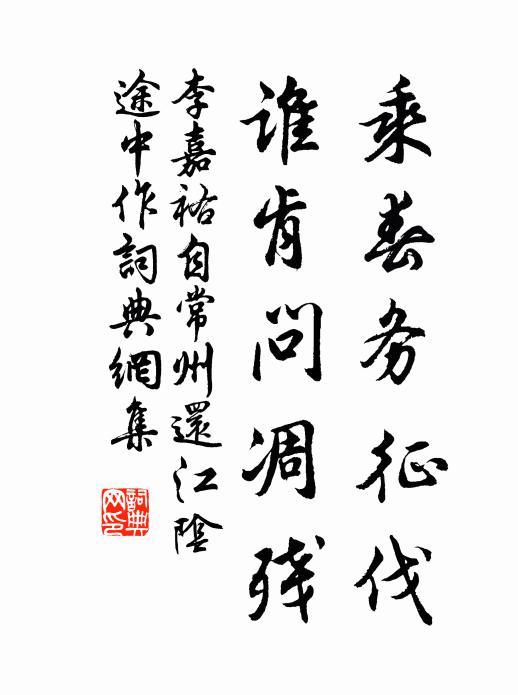 乘春务征伐
谁肯问凋残
李嘉祐自常州還江陰
途中作詞典網集
詞典网印